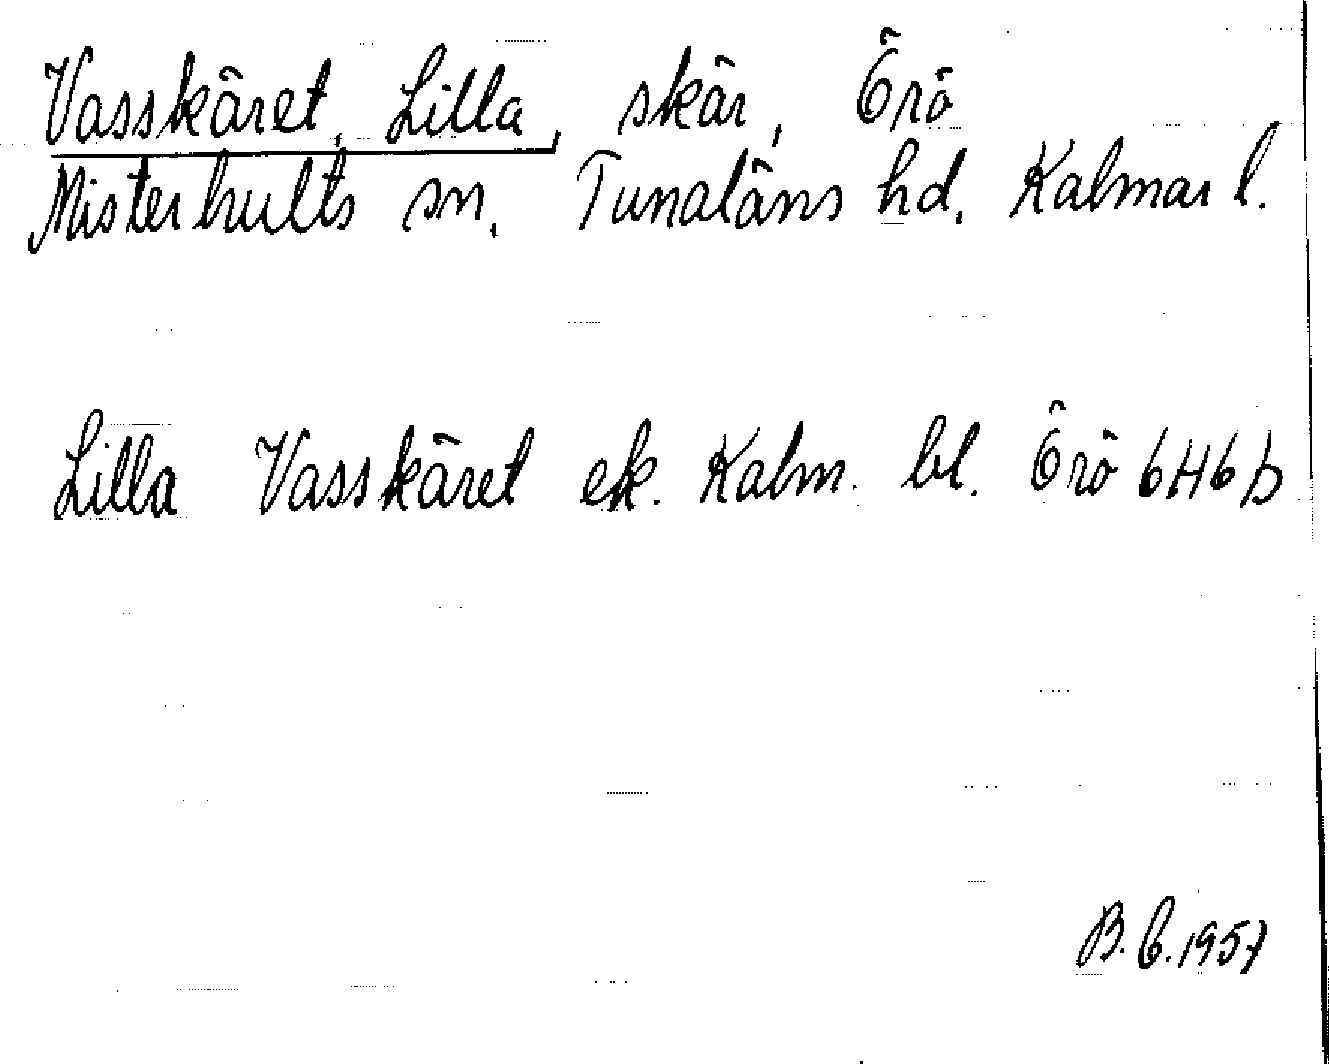 Vasskäret, Lilla, skär, Örö
Misterhults sn. Tunaläns hd. Kalmar l.
Lilla Vasskäret ek. Kalm. bl. Örö 6H6b
B.C. 1957